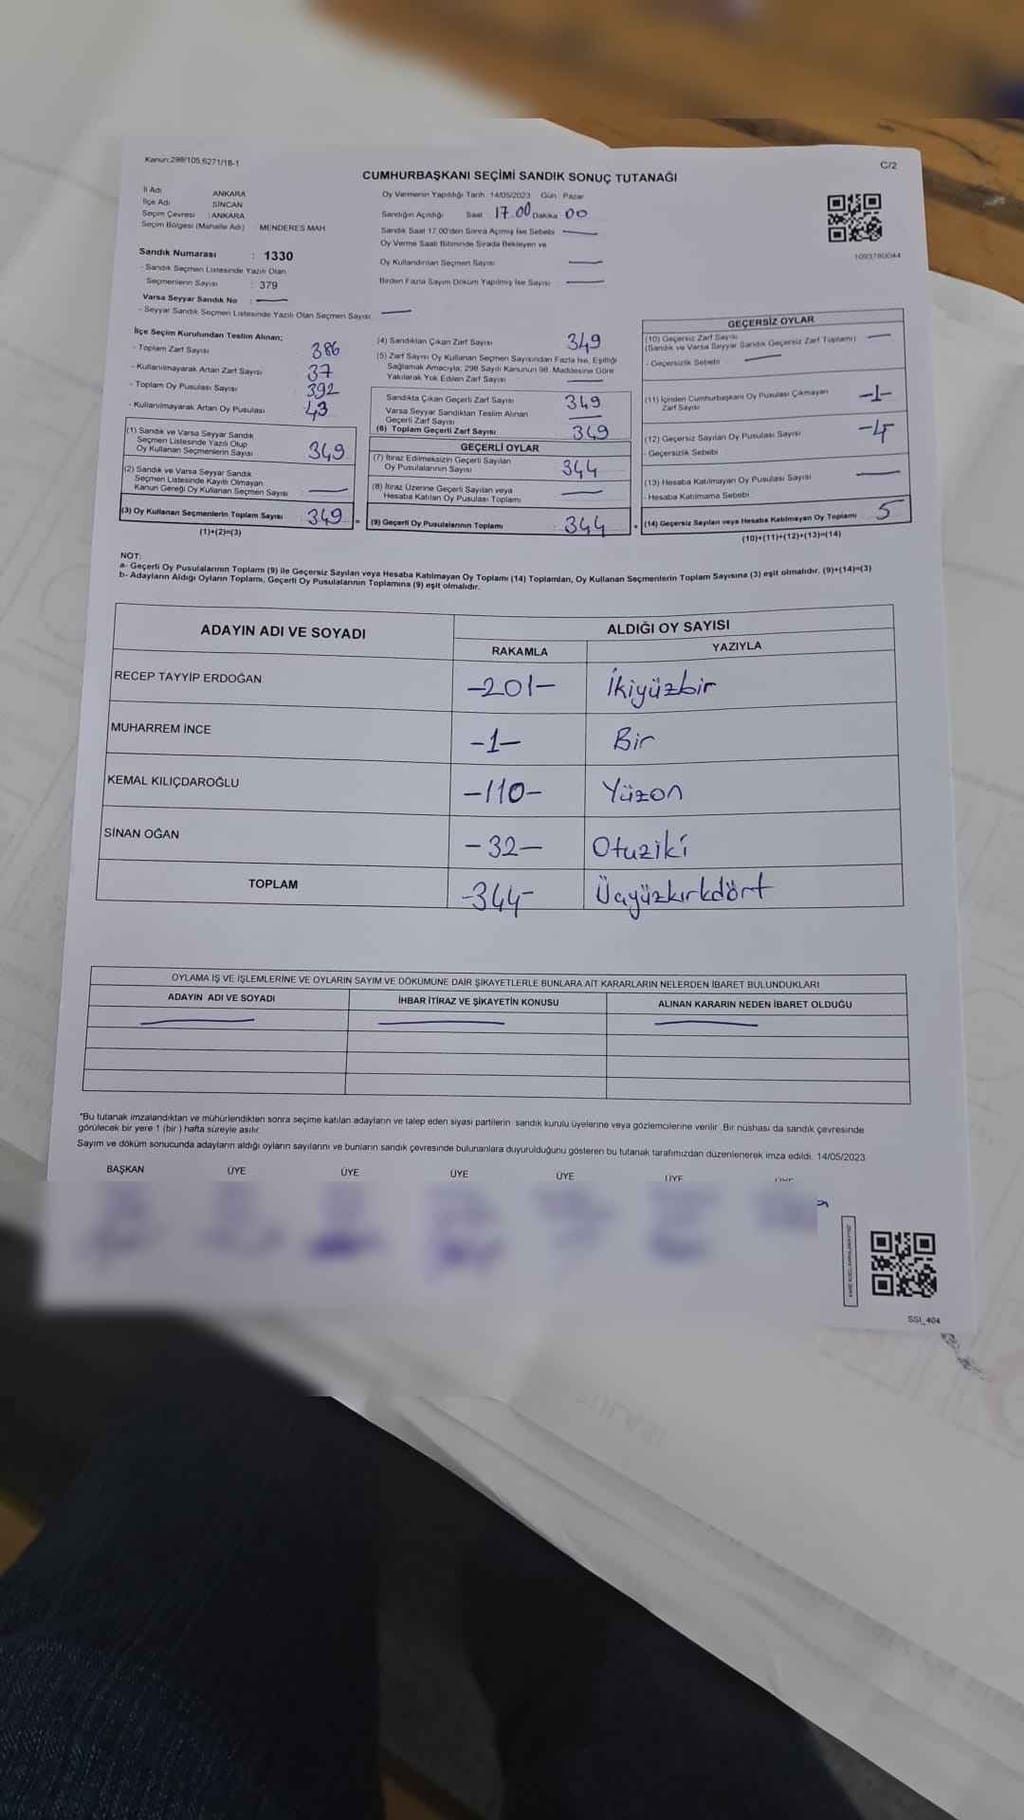 Kanun:298/105,6271/18-1
C/2
CUMHURBAŞKANI SEÇİMİ SANDIK SONUÇ TUTANAĞI
İl Adı ANKARA
İlçe Adı SİNCAN
Seçim Çevresi : ANKARA
Seçim Bölgesi (Mahalle Adı) MENDERES MAH
Oy Vermenin Yapıldığı Tarih: 14/05/2023 Gün: Pazar
Sandığın Açıldığı Saat 17.00 Dakika 00
Sandık Saat 17.00'den Sonra Açılmış İse Sebebi
Oy Verme Saati Bitiminde Sırada Bekleyen ve
Oy Kullandırılan Seçmen Sayısı
Birden Fazla Sayım Döküm Yapılmış İse Sayısı
1093780044
Sandık Numarası : 1330
- Sandık Seçmen Listesinde Yazılı Olan
Seçmenlerin Sayısı : 379
Varsa Seyyar Sandık No :
- Seyyar Sandık Seçmen Listesinde Yazılı Olan Seçmen Sayısı
İlçe Seçim Kurulundan Teslim Alınan;
- Toplam Zarf Sayısı 386
- Kullanılmayarak Artan Zarf Sayısı 37
- Toplam Oy Pusulası Sayısı 392
- Kullanılmayarak Artan Oy Pusulası 43
(1) Sandık ve Varsa Seyyar Sandık
Seçmen Listesinde Yazılı Olup
Oy Kullanan Seçmenlerin Sayısı 349
(2) Sandık ve Varsa Seyyar Sandık
Seçmen Listesinde Kayıtlı Olmayan
Kanun Gereği Oy Kullanan Seçmen Sayısı
(3) Oy Kullanan Seçmenlerin Toplam Sayısı 349
(1)+(2)=(3)
(4) Sandıktan Çıkan Zarf Sayısı 349
(5) Zarf Sayısı Oy Kullanan Seçmen Sayısından Fazla İse, Eşitliği
Sağlamak Amacıyla; 298 Sayılı Kanunun 98. Maddesine Göre
Yakılarak Yok Edilen Zarf Sayısı
Sandıkta Çıkan Geçerli Zarf Sayısı 349
Varsa Seyyar Sandıktan Teslim Alınan
Geçerli Zarf Sayısı
(6) Toplam Geçerli Zarf Sayısı 349
GEÇERLİ OYLAR
(7) İtiraz Edilmeksizin Geçerli Sayılan
Oy Pusulalarının Sayısı 344
(8) İtiraz Üzerine Geçerli Sayılan veya
Hesaba Katılan Oy Pusulası Toplamı
= (9) Geçerli Oy Pusulalarının Toplamı 344
GEÇERSİZ OYLAR
(10) Geçersiz Zarf Sayısı
(Sandık ve Varsa Seyyar Sandık Geçersiz Zarf Toplamı)
- Geçersizlik Sebebi
(11) İçinden Cumhurbaşkanı Oy Pusulası Çıkmayan
Zarf Sayısı -1-
(12) Geçersiz Sayılan Oy Pusulası Sayısı -4-
- Geçersizlik Sebebi
(13) Hesaba Katılmayan Oy Pusulası Sayısı
- Hesaba Katılmama Sebebi
+ (14) Geçersiz Sayılan veya Hesaba Katılmayan Oy Toplamı 5
(10)+(11)+(12)+(13)=(14)
NOT:
a- Geçerli Oy Pusulalarının Toplamı (9) ile Geçersiz Sayılan veya Hesaba Katılmayan Oy Toplamı (14) Toplamları, Oy Kullanan Seçmenlerin Toplam Sayısına (3) eşit olmalıdır. (9)+(14)=(3)
b- Adayların Aldığı Oyların Toplamı, Geçerli Oy Pusulalarının Toplamına (9) eşit olmalıdır.
ADAYIN ADI VE SOYADI ALDIĞI OY SAYISI
RAKAMLA YAZIYLA
RECEP TAYYİP ERDOĞAN -201- İkiyüzbir
MUHARREM İNCE -1- Bir
KEMAL KILIÇDAROĞLU -110- Yüzon
SİNAN OĞAN -32- Otuziki
TOPLAM -344- Üçyüzkırkdört
OYLAMA İŞ VE İŞLEMLERİNE VE OYLARIN SAYIM VE DÖKÜMÜNE DAİR ŞİKAYETLERLE BUNLARA AİT KARARLARIN NELERDEN İBARET BULUNDUKLARI
ADAYIN ADI VE SOYADI İHBAR İTİRAZ VE ŞİKAYETİN KONUSU ALINAN KARARIN NEDEN İBARET OLDUĞU
*Bu tutanak imzalandıktan ve mühürlendikten sonra seçime katılan adayların ve talep eden siyasi partilerin sandık kurulu üyelerine veya gözlemcilerine verilir. Bir nüshası da sandık çevresinde
görülecek bir yere 1 (bir) hafta süreyle asılır.
Sayım ve döküm sonucunda adayların aldığı oyların sayılarını ve bunların sandık çevresinde bulunanlara duyurulduğunu gösteren bu tutanak tarafımızdan düzenlenerek imza edildi. 14/05/2023
BAŞKAN ÜYE ÜYE ÜYE ÜYE ÜYE
SSI_404